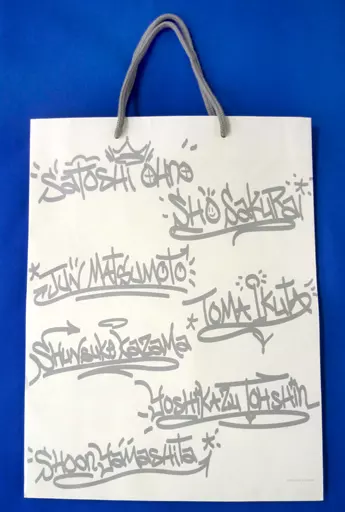 SATOSHI OHNO
SHO SAKURAI
JUN MATSUMOTO
TOMA IKUTA
SHUNSUKE KAZAMA
YOSHIKAZU TOHSHIN
SHOON YAMASHITA